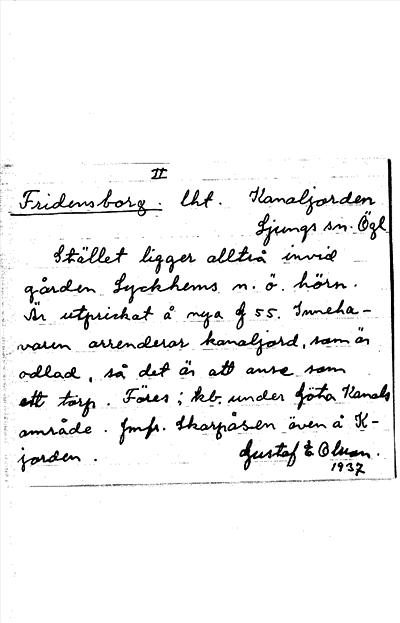 II
Fridensborg. lht. Kanaljorden
Ljungs sn. Ögl
Stället ligger alltså invid
gården Lyckhems n. ö. hörn.
Är utprickat å nya G 55. Inneha-
varen arrenderar kanaljord, som är
odlad, så det är att anse som
ett torp. Föres i kb. under Göta Kanals
område. Jmfr. Skarpåsen även å K-
jorden.
Gustaf E Olson.
1937